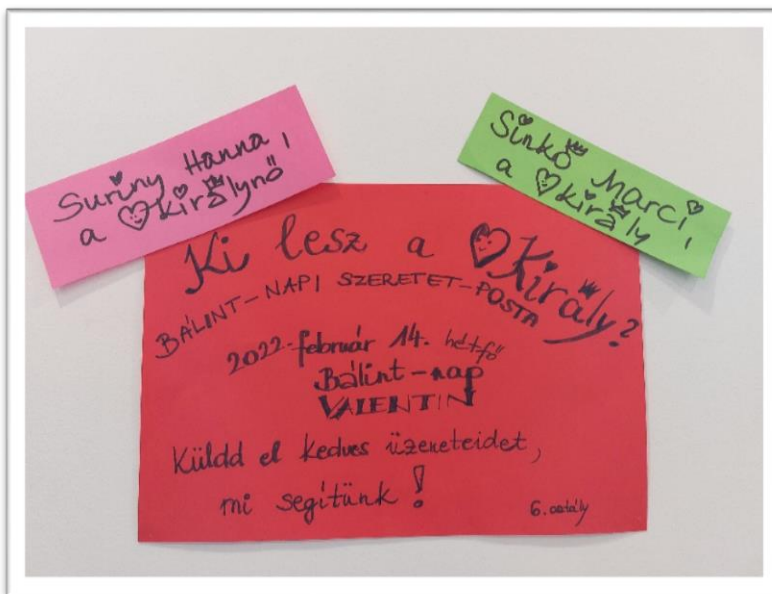 Suriny Hanna,
a ♡királynő
Sinkó Marci,
a ♡király
Ki lesz a ♡Király?
BÁLINT-NAPI SZERETET-POSTA
2022. február 14. hétfő
Bálint-nap
VALENTIN
Küldd el kedves üzeneteidet,
mi segítünk!
6. osztály